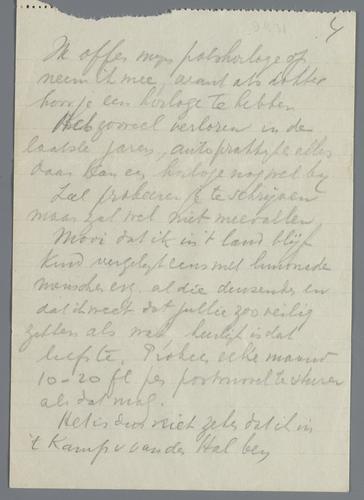 4
Ik offer mijn polshorloge op
neem 't mee, want als dokter
hoor je een horloge te hebben
Heb zooveel verloren in de
laatste jaren, alles
daar kan een horloge nog wel bij
Zal probeeren je te schrijven
maar zal wel niet meevallen
Mooi dat ik in 't land blijf
Kind vergelijk eens met
menschen enz. al die duizenden en
dat ik weet dat jullie zoo veilig
zitten als wat heerlijk is dat
liefste. Probeer elke maand
10-20 fl per postwissel te sturen
als dat mag.
Het is dus niet zeker dat ik in
't Kamp v van der Hal ben